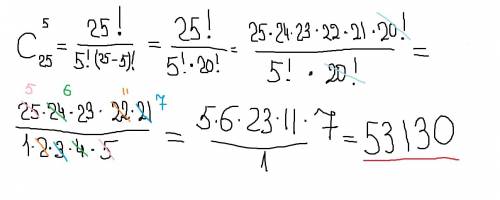 C₂₅⁵ = 25! / 5!·(25-5)! = 25! / 5!·20! = 25·24·23·22·21·20! / 5!·20! =
25·24·23·22·21 / 1·2·3·4·5 = 5·6·23·11·7 / 1 = 53130
5 6 11 7